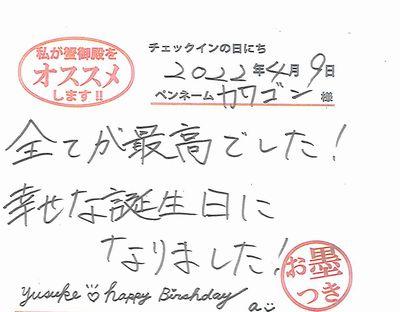 私が蟹御殿を
オススメ
します!!
チェックインの日にち
2022年4月9日
ペンネーム カワゴン 様
全てが最高でした!
幸せな誕生日に
なりました!
お墨
つき
yusuke happy Birthday